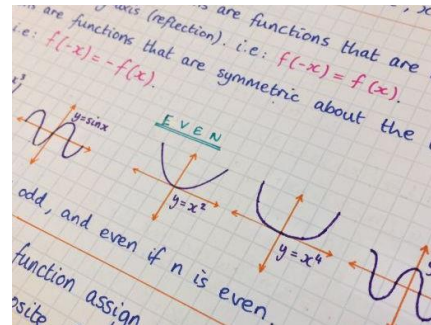 are functions that are
axis (reflection). i.e: f(-x) = f(x).
are functions that are symmetric about the
i.e: f(-x) = -f(x).
y=sinx
EVEN
y=x²
y=x⁴
odd, and even if n is even.
function assign